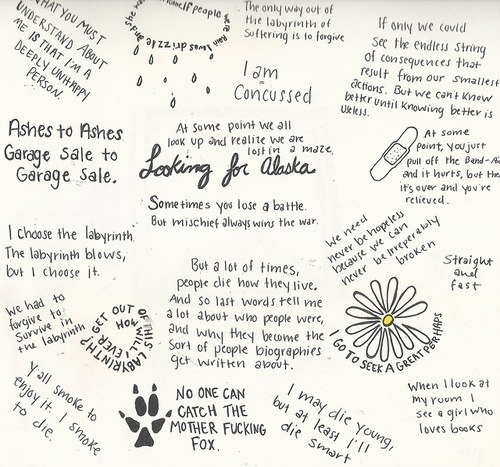 WHAT YOU MUST
UNDERSTAND ABOUT
ME IS THAT I'M A
DEEPLY UNHAPPY
PERSON.
if people were Rain I was drizzle
she was
The only way out of
the labyrinth of
Suffering is to forgive
I am
Concussed
If only we could
See the endless string
of consequences that
result from our smallest
actions. But we can't know
better until knowing better is
useless.
Ashes to Ashes
Garage Sale to
Garage Sale.
At some point we all
look up and realize we are
lost in a maze.
Looking for Alaska
Sometimes you lose a battle.
But mischief always wins the war.
At some
Point, you just
pull off the Band-Aid
and it hurts, but then
it's over and you're
relieved.
I choose the labyrinth.
The labyrinth blows,
but I choose it.
We need
never be hopeless
because we can
never be irreperably
broken
Straight
and
fast
But a lot of times,
people die how they live.
And so last words tell me
a lot about who people were,
and why they become the
sort of people biographies
get written about.
We had to
forgive to
Survive in
the labyrinth
HOW WILL I EVER GET OUT OF THIS LABYRINTH?
I GO TO SEEK A GREAT PERHAPS
Y'all smoke to
enjoy it. I smoke
to die.
NO ONE CAN
CATCH THE
MOTHER FUCKING
FOX.
I may die young,
but at least I'll
die smart
When I look at
my room I
see a girl who
loves books